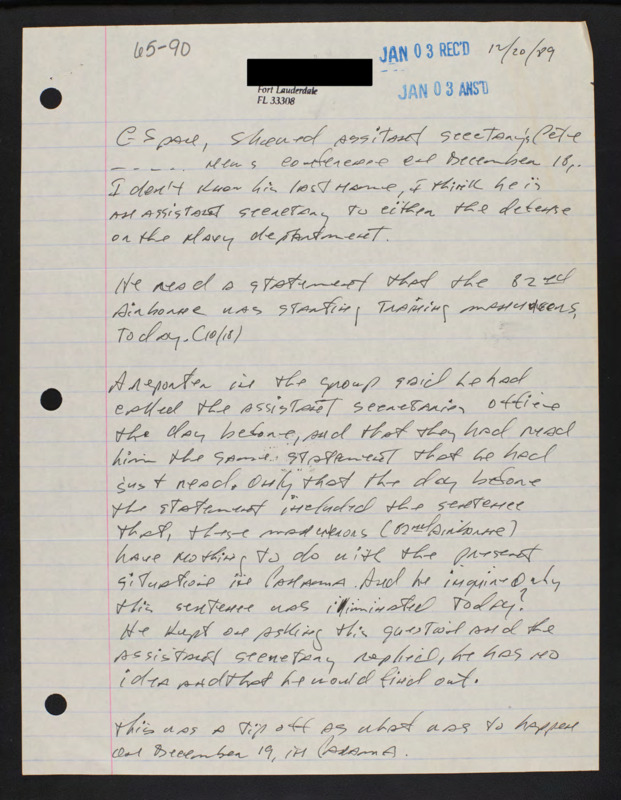 65-90
JAN 03 REC'D 12/20/89
JAN 03 ANS'D
Fort Lauderdale
FL 33308
C-Span, showed assitant secretary's Pete
----- news conference on December 18,.
I don't know his last name, I think he is
an assistant secretary to either the defense
or the Navy department.
He read a statement that the 82nd
Airborne was starting training manuvers,
today. (10/18)
A reporter in the group said he had
called the assistant secretaries office
the day before, and that they had read
him the same statement that he had
just read. Only that the day before
the statement included the sentence
that, these manuvers (82nd Airborne)
have nothing to do with the present
situation in Panama. And he inquired why
this sentence was iliminated today?
He kept on asking this question and the
assistant secretary replied, he has no
idea and that he would find out.
This was a tip off as what was to happen
on December 19, in Panama.